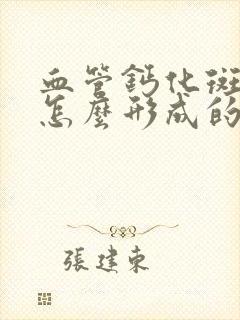 血管鈣化斑
怎麼形成的
張建東